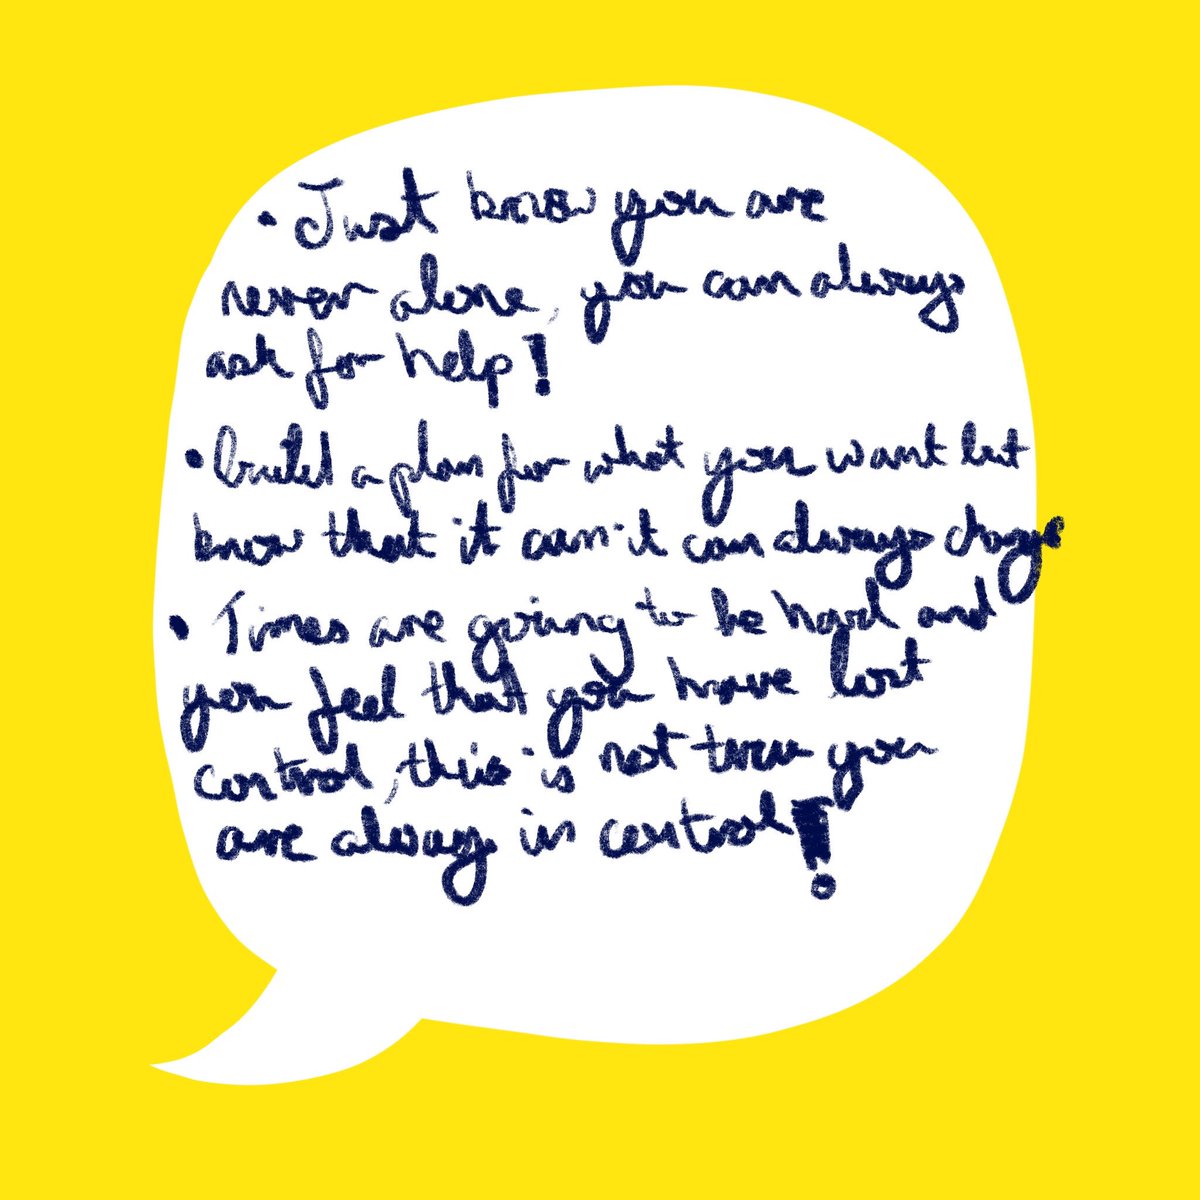 • Just know you are
never alone, you can always
ask for help!
• build a plan for what you want but
know that it can it can always change
• Times are going to be hard and
you feel that you have lost
control, this is not true you
are always in control!